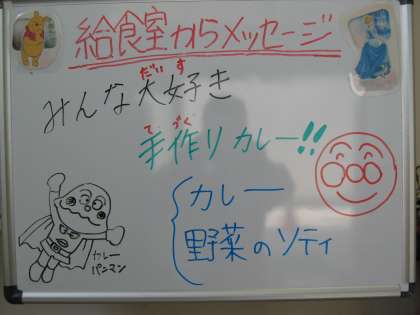 給食室からメッセージ
だい す
みんな大好き
て づく
手作りカレー!!
カレー
野菜のソティ
カレー
パンマン